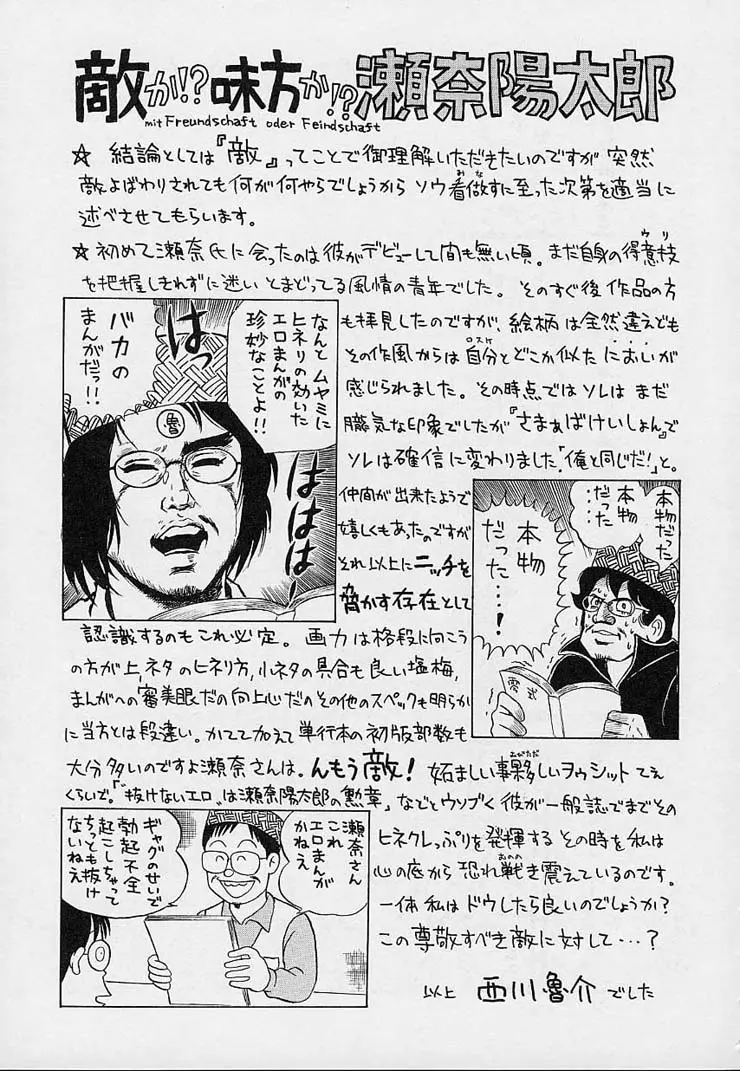 敵か!?味方か!?瀬奈陽太郎
mit Freundschaft oder Feindschaft
☆ 結論としては『敵』ってことで御理解いただきたいのですが 突然
敵よばわりされても何が何やらでしょうから ソウ看做すに至った次第を適当に
述べさせてもらいます。
☆ 初めて瀬奈氏に会ったのは彼がデビューして間も無い頃。まだ自身の得意技
を把握しきれずに迷い とまどってる風情の青年でした。そのすぐ後 作品の方
も拝見したのですが、絵柄は全然違えども
その作風からは自分とどこか似た においが
感じられました。その時点では ソレは まだ
朧気な印象でしたが『さまぁばけいしょん』で
ソレは確信に変わりました「俺と同じだ!」と。
仲間が出来たようで
嬉しくもあったのですが
それ以上にニッチを
脅かす存在として
認識するのもこれ必定。画力は格段に向こう
の方が上、ネタのヒネリ方、小ネタの具合も良い塩梅、
まんがへの審美眼だの向上心だのその他のスペックも明らか
に当方とは段違い。かてて加えて単行本の初版部数も
大分多いのですよ瀬奈さんは。んもう敵! 妬ましい事夥しいヲゥシットてぇ
くらいで。"抜けないエロ"は瀬奈陽太郎の勲章」などとウソブく彼が一般誌でまでその
ヒネクレっぷりを発揮する その時を私は
心の底から恐れ戦き震えているのです。
一体 私はドウしたら良いのでしょうか?
この尊敬すべき敵に対して…?
以上 西川魯介でした
なんと ムヤミに
ヒネリの効いた
エロまんがの
珍妙なことよ!!
はっ
はははは
バカの
まんがだっ!!
魯
本物だった
本物
だった…
本物
だった…!
零式
瀬奈さん
これ
エロまんが
かねえ
ギャグのせいで
勃起不全
起こしちゃって
ちっとも抜け
ないねえ